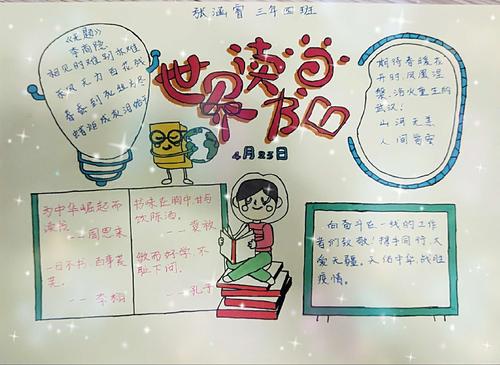 张涵宵 三年四班
世界读书日
4月23日
《无题》
李商隐
相见时难别亦难
东风无力百花残
春蚕到死丝方尽
蜡炬成灰泪始干
期待春暖花
开时,凤凰涅
槃,浴火重生的
武汉!
山河无恙
人间皆安
为中华崛起而
读书
---周恩来
一日不书,百事荒
芜。
---李栩
书味在胸中,甘于
饮陈酒。
---袁枚
敏而好学,不
耻下问。
---孔子
向奋斗在一线的工作
者们致敬!携手同行,大
爱无疆。天佑中华,战胜
疫情。